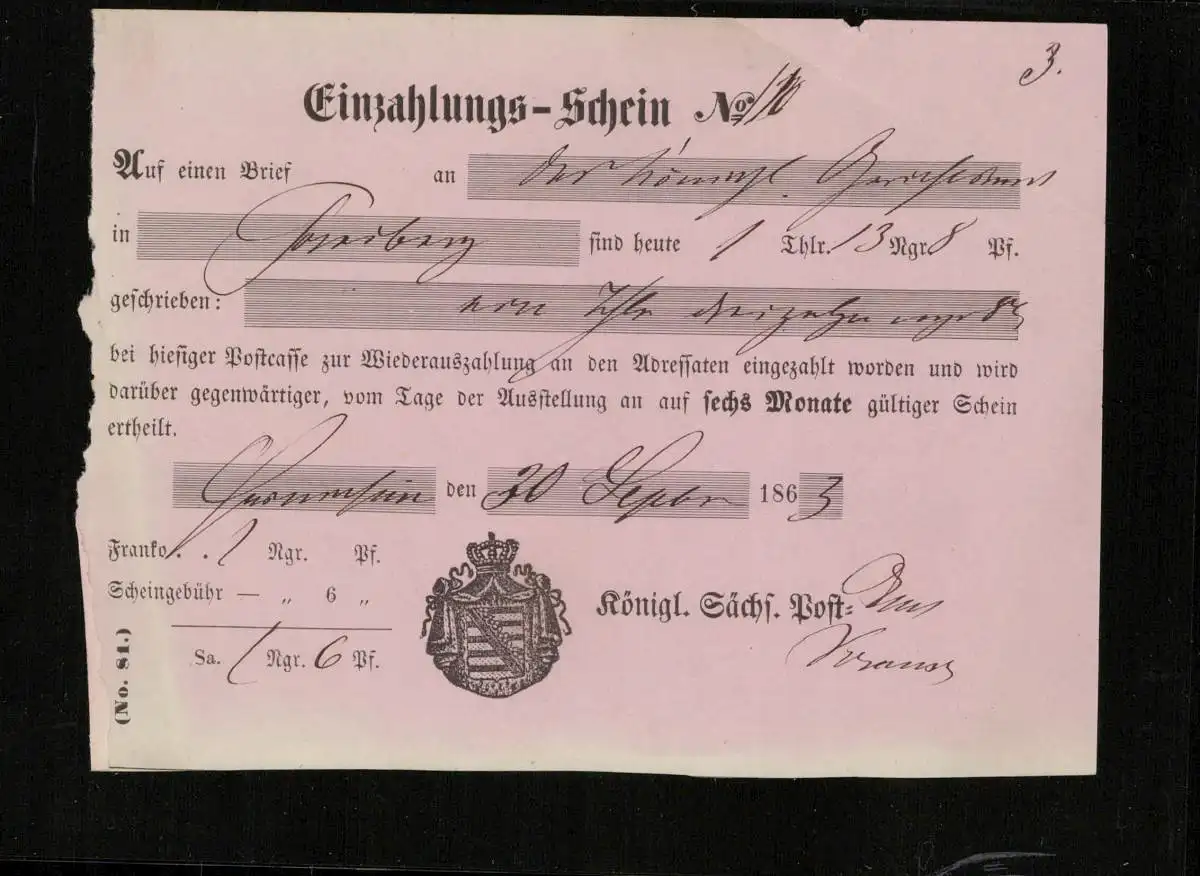 3.
Einzahlungs-Schein No. 110
Auf einen Brief an das Königl. Gerichtsamt
in Freiberg sind heute 1 Thlr. 13 Ngr. 8 Pf.
geschrieben: ein Thlr dreizehn ngr 8
bei hiesiger Postcasse zur Wiederauszahlung an den Adressaten eingezahlt worden und wird
darüber gegenwärtiger, vom Tage der Ausstellung an auf sechs Monate gültiger Schein
ertheilt.
den 30 Septbr 1863
Franko . . 1 Ngr. Pf.
Scheingebühr — „ 6 „
Sa. 1 Ngr. 6 Pf.
Königl. Sächs. Post-
(No. 81.)